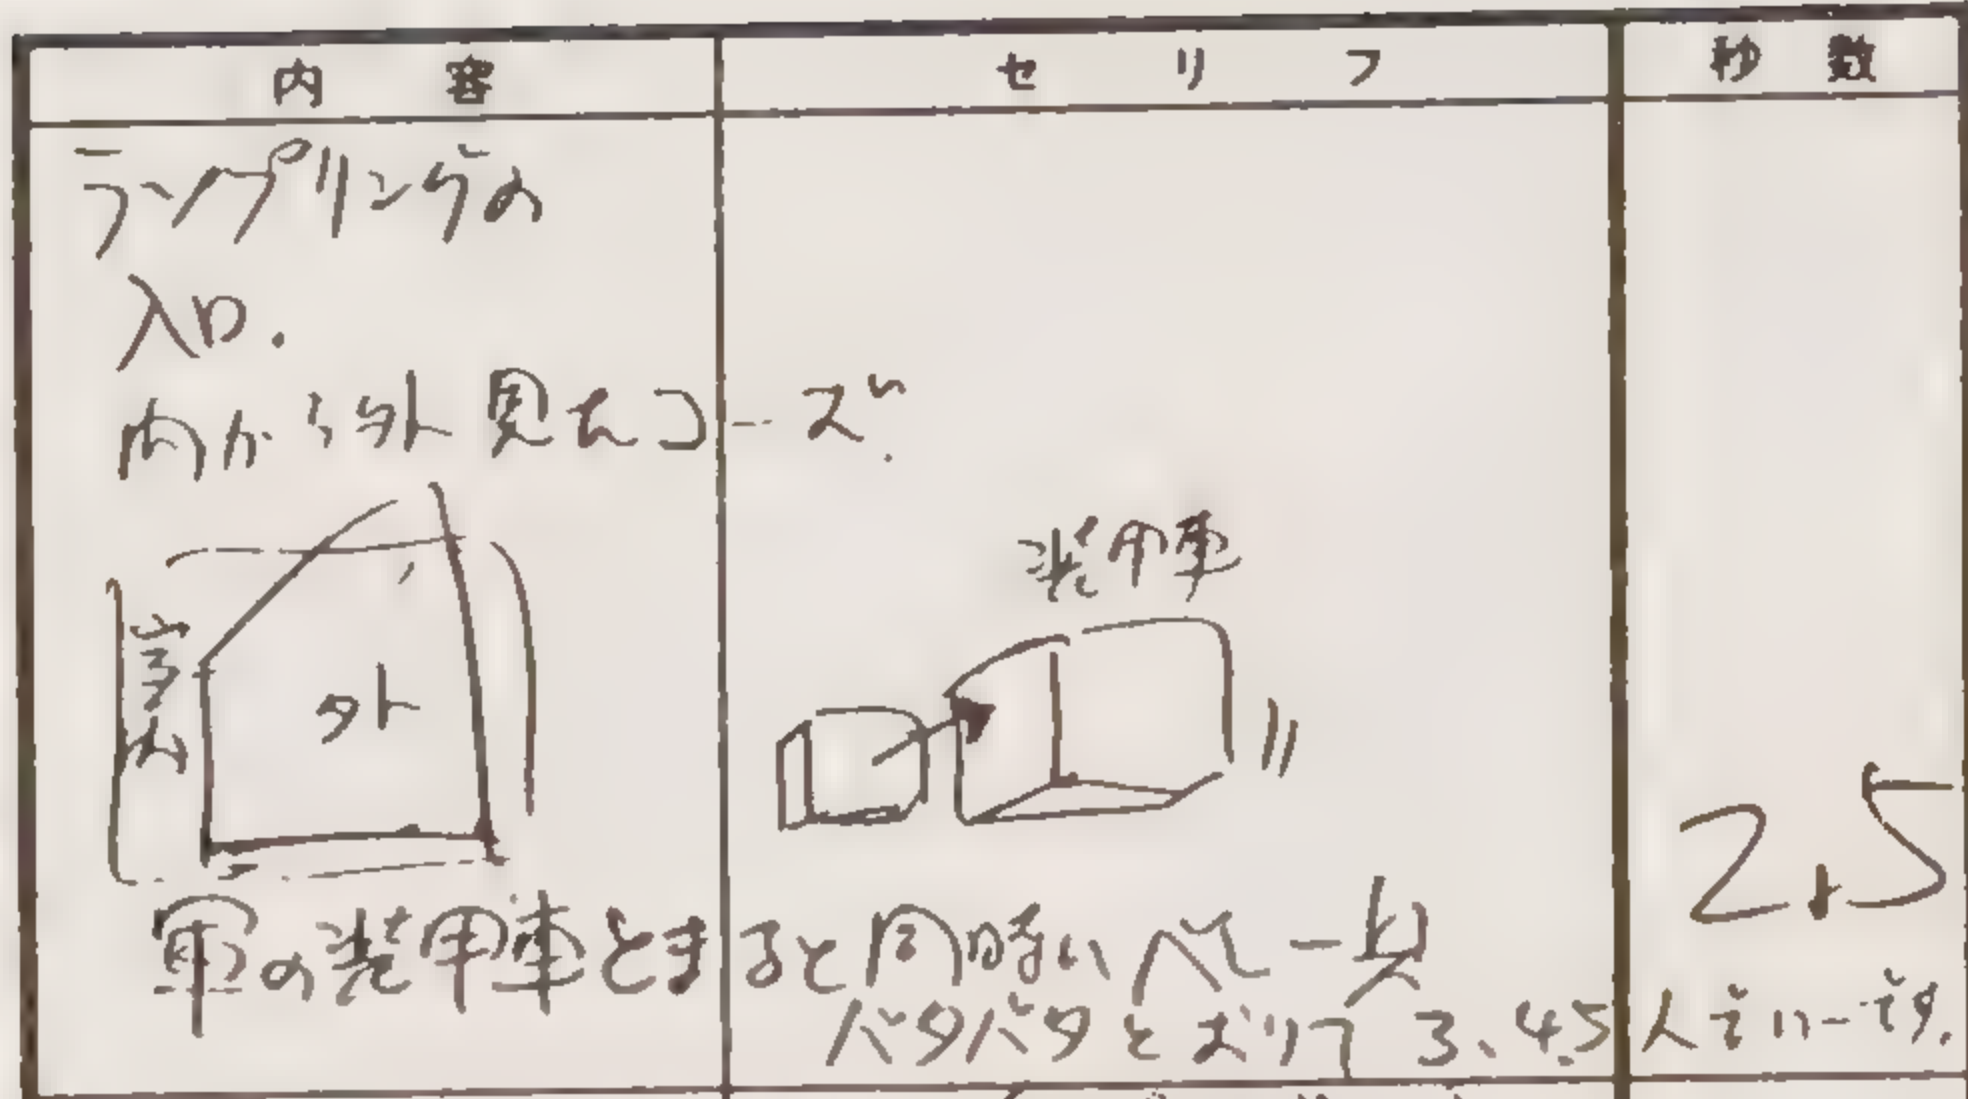 内容
セリフ
秒数
ランプリングの
入口.
内から外見たコーズ.
室内
外
装甲車
2.5
軍の装甲車とまると同時に
バタバタとおりて 3、4.5人でいーです.